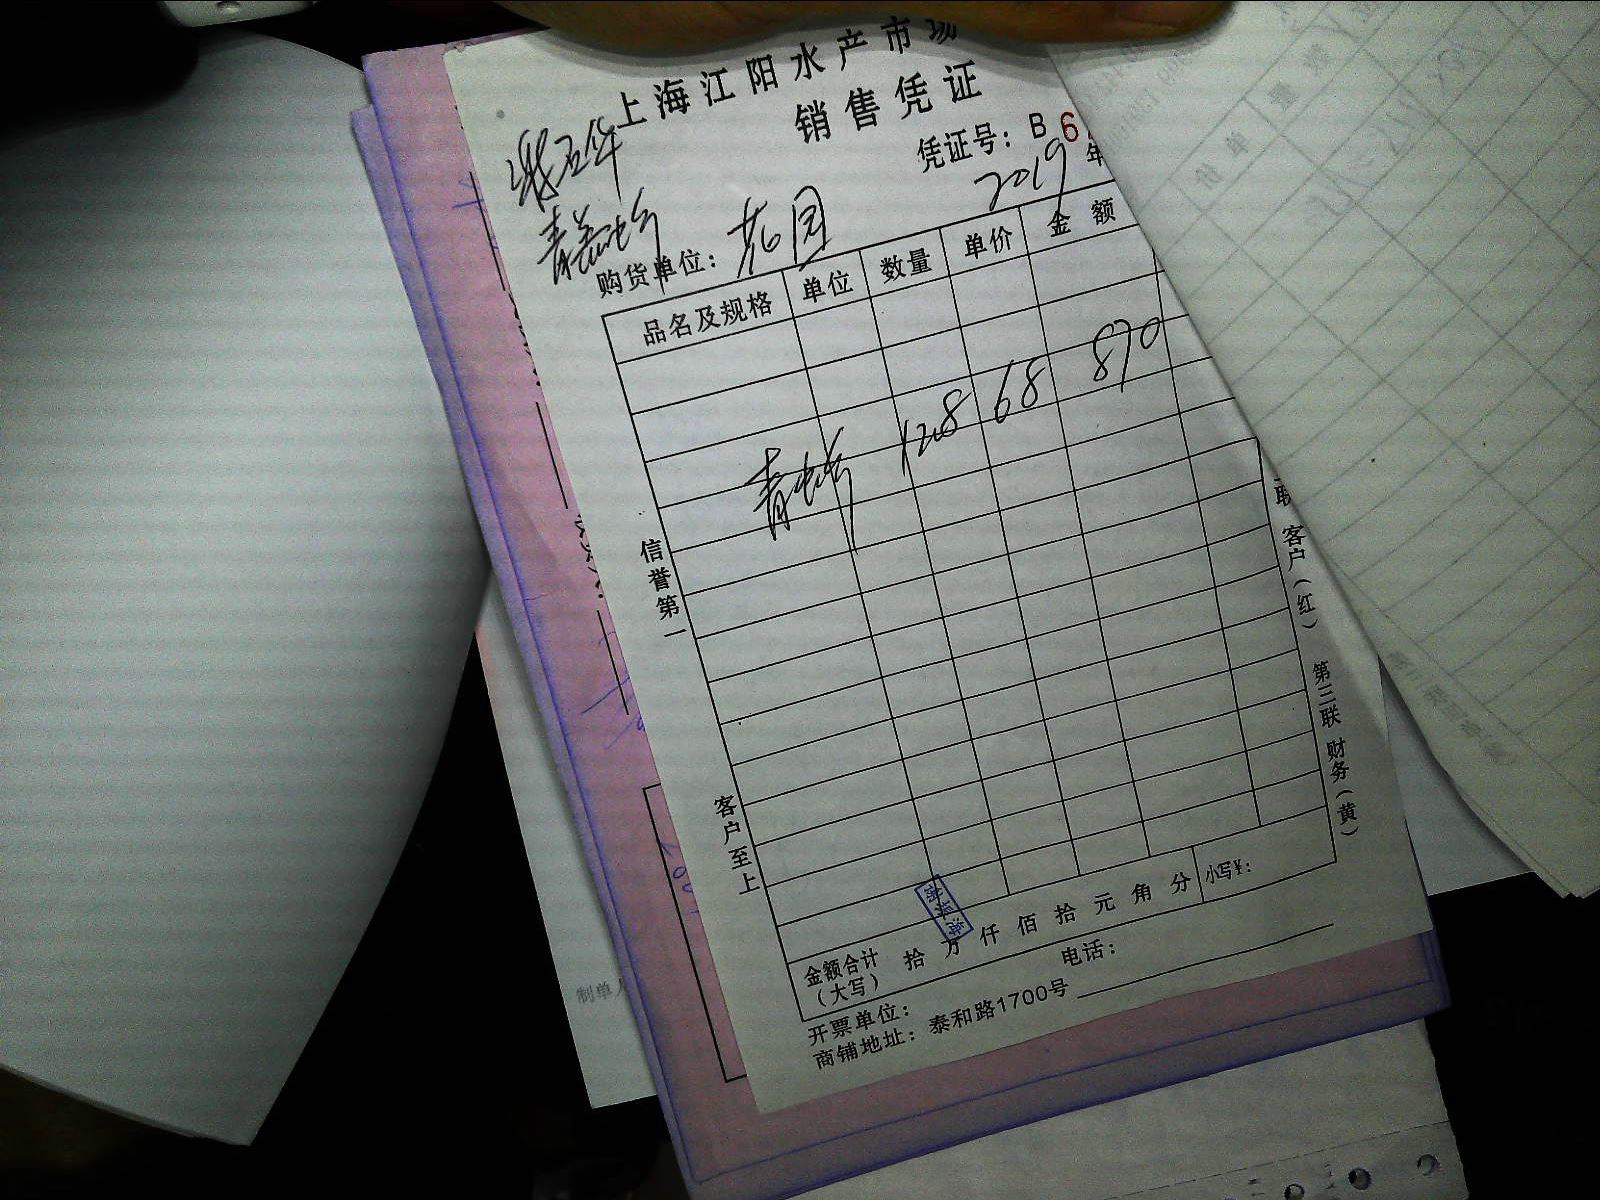 上海江阳水产市场
销售凭证
凭证号：B6
2019 年
购货单位：花园
品名及规格 单位 数量 单价 金额
青虾 12.8 68 870
信誉第一
客户至上
联 客户（红） 第三联 财务（黄）
金额合计（大写） 拾 万 仟 佰 拾 元 角 分 小写¥：
开票单位： 电话：
商铺地址：泰和路1700号
制单人